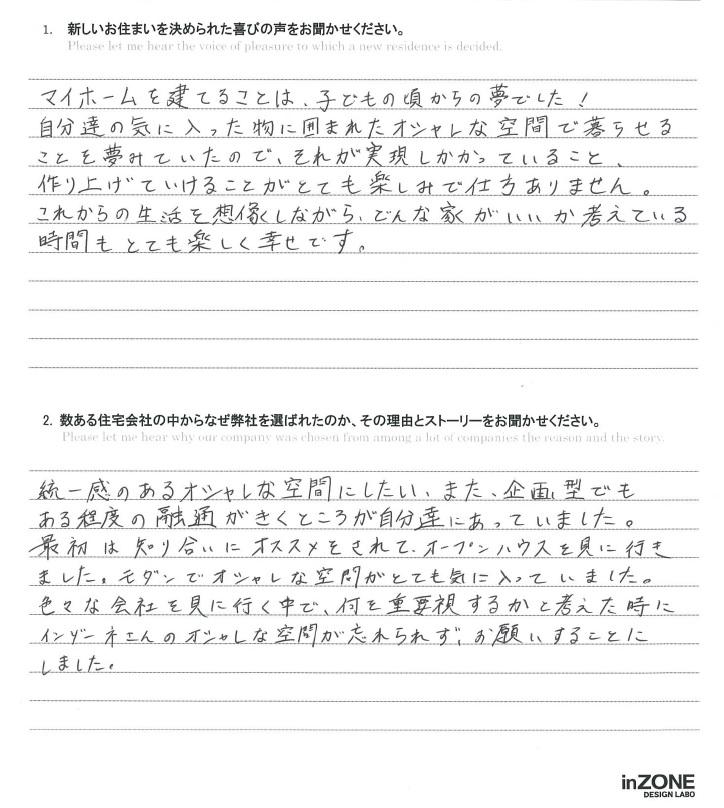 1. 新しいお住まいを決められた喜びの声をお聞かせください。
Please let me hear the voice of pleasure to which a new residence is decided.
マイホームを建てることは、子どもの頃からの夢でした!
自分達の気に入った物に囲まれたオシャレな空間で暮らせる
ことを夢みていたので、それが実現しかかっていること、
作り上げていけることがとても楽しみで仕方ありません。
これからの生活を想像しながら、どんな家がいいか考えている
時間もとても楽しく幸せです。
2. 数ある住宅会社の中からなぜ弊社を選ばれたのか、その理由とストーリーをお聞かせください。
Please let me hear why our company was chosen from among a lot of companies the reason and the story.
統一感のあるオシャレな空間にしたい、また、企画型でも
ある程度の融通がきくところが自分達にあっていました。
最初は知り合いにオススメをされて、オープンハウスを見に行き
ました。モダンでオシャレな空間がとても気に入っていました。
色々な会社を見に行く中で、何を重要視するかと考えた時に
インゾーネさんのオシャレな空間が忘れられず、お願いすることに
しました。
inZONE
DESIGN LABO